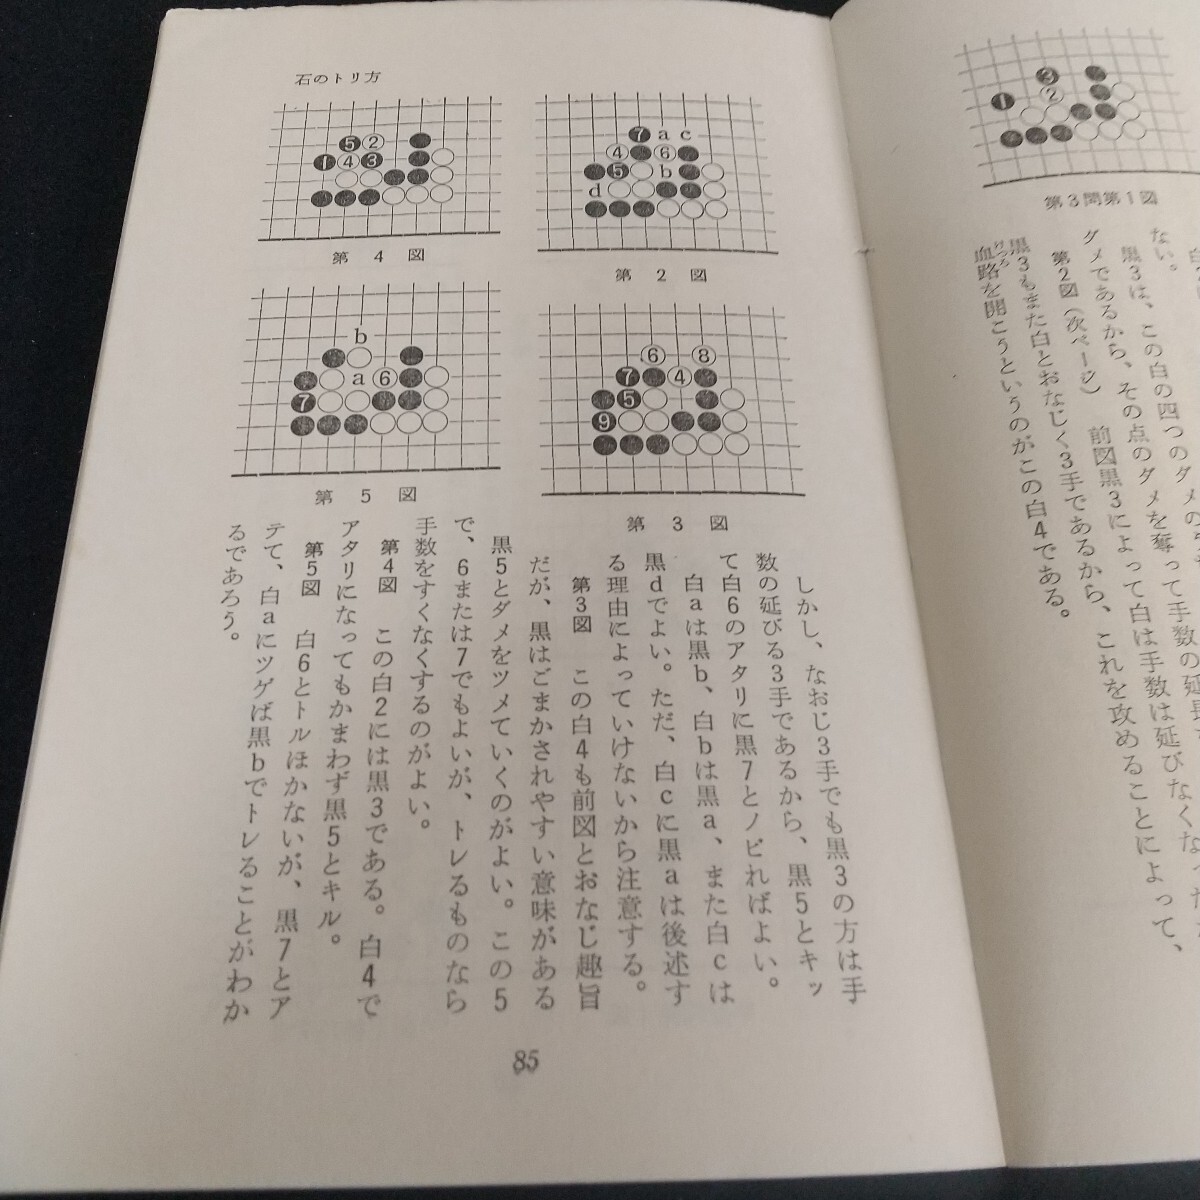 石のトリ方
第3問第1図
ない。
黒3は、この白の四つのダメの
ダメであるから、その点のダメを奪って手数の延長
第2図(次ページ) 前図黒3によって白は手数は延びなくなった
黒3もまた白とおなじく3手であるから、これを攻めることによって、
血路を開こうというのがこの白4である。
けつろ
a c
b
d
第2図
第3図
第4図
b
a
第5図
しかし、なおじ3手でも黒3の方は手
数の延びる3手であるから、黒5とキッ
て白6のアタリに黒7とノビればよい。
白aは黒b、白bは黒a、また白cは
黒dでよい。ただ、白cに黒aは後述す
る理由によっていけないから注意する。
第3図 この白4も前図とおなじ趣旨
だが、黒はごまかされやすい意味がある
黒5とダメをツメていくのがよい。この5
で、6または7でもよいが、トレるものなら
手数をすくなくするのがよい。
第4図 この白2には黒3である。白4で
アタリになってもかまわず黒5とキル。
第5図 白6とトルほかないが、黒7とア
テて、白aにツゲば黒bでトレることがわか
るであろう。
85